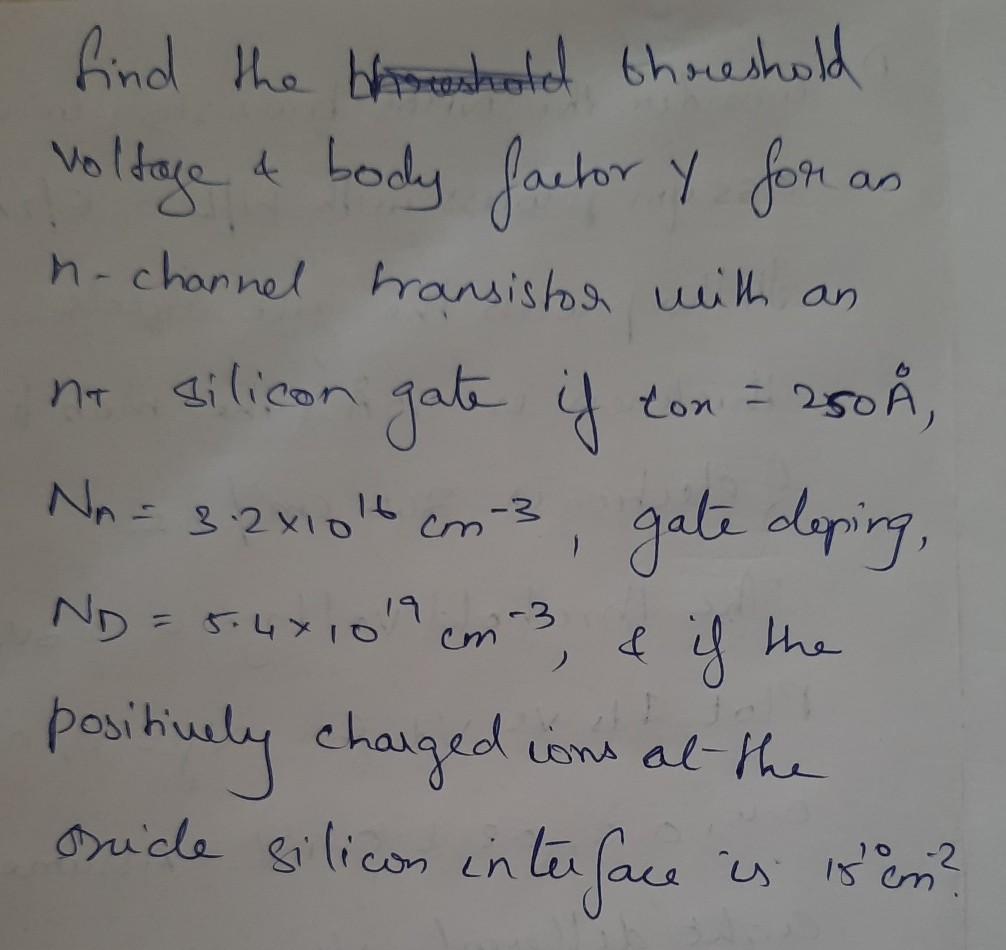 find the threshold
voltage & body factor γ for an
n-channel transistor with an
n+ silicon gate if tox = 250 Å,
NA = 3.2×10¹⁶ cm⁻³, gate doping,
ND = 5.4×10¹⁹ cm⁻³, & if the
positively charged ions at the
oxide silicon interface is 10¹⁰ cm⁻².